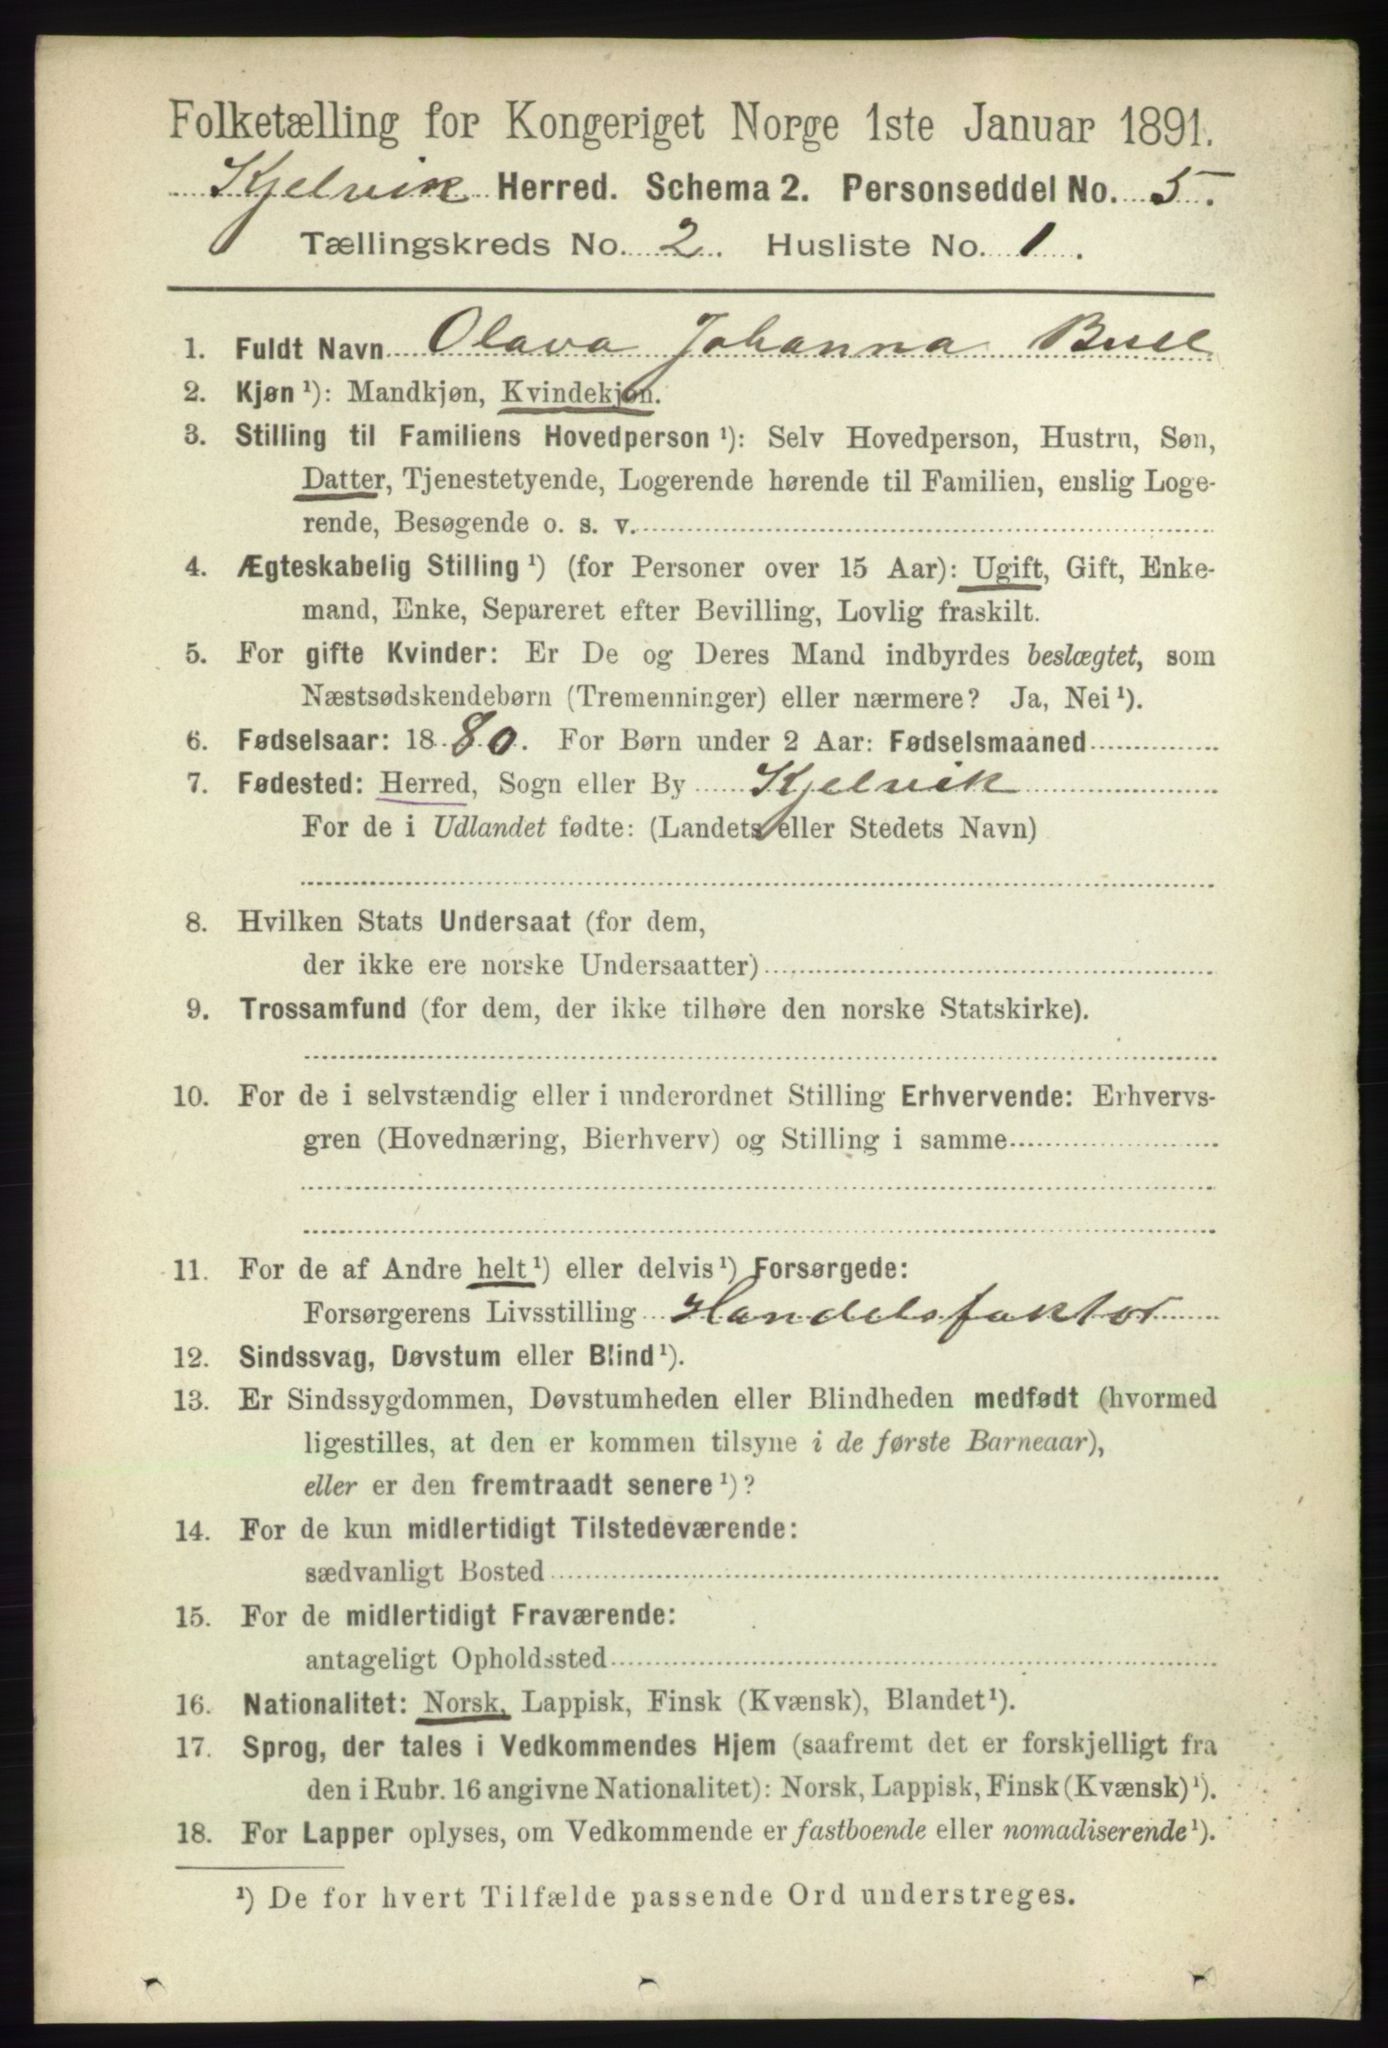 Folketælling for Kongeriget Norge 1ste Januar 1891.
Kjelvik Herred. Schema 2. Personseddel No. 5.
Tællingskreds No. 2. Husliste No. 1.
1. Fuldt Navn Olava Johanna Bull
2. Kjøn ¹): Mandkjøn, Kvindekjøn.
3. Stilling til Familiens Hovedperson ¹): Selv Hovedperson, Hustru, Søn,
Datter, Tjenestetyende, Logerende hørende til Familien, enslig Loge-
rende, Besøgende o. s. v.
4. Ægteskabelig Stilling ¹) (for Personer over 15 Aar): Ugift, Gift, Enke-
mand, Enke, Separeret efter Bevilling, Lovlig fraskilt.
5. For gifte Kvinder: Er De og Deres Mand indbyrdes beslægtet, som
Næstsødskendebørn (Tremenninger) eller nærmere? Ja, Nei ¹).
6. Fødselsaar: 1880. For Børn under 2 Aar: Fødselsmaaned
7. Fødested: Herred, Sogn eller By Kjelvik
For de i Udlandet fødte: (Landets eller Stedets Navn)
8. Hvilken Stats Undersaat (for dem,
der ikke ere norske Undersaatter)
9. Trossamfund (for dem, der ikke tilhøre den norske Statskirke).
10. For de i selvstændig eller i underordnet Stilling Erhvervende: Erhvervs-
gren (Hovednæring, Bierhverv) og Stilling i samme
11. For de af Andre helt ¹) eller delvis ¹) Forsørgede:
Forsørgerens Livsstilling Handelsfaktor
12. Sindssvag, Døvstum eller Blind ¹).
13. Er Sindssygdommen, Døvstumheden eller Blindheden medfødt (hvormed
ligestilles, at den er kommen tilsyne i de første Barneaar),
eller er den fremtraadt senere ¹)?
14. For de kun midlertidigt Tilstedeværende:
sædvanligt Bosted
15. For de midlertidigt Fraværende:
antageligt Opholdssted
16. Nationalitet: Norsk, Lappisk, Finsk (Kvænsk), Blandet ¹).
17. Sprog, der tales i Vedkommendes Hjem (saafremt det er forskjelligt fra
den i Rubr. 16 angivne Nationalitet): Norsk, Lappisk, Finsk (Kvænsk) ¹).
18. For Lapper oplyses, om Vedkommende er fastboende eller nomadiserende ¹).
¹) De for hvert Tilfælde passende Ord understreges.